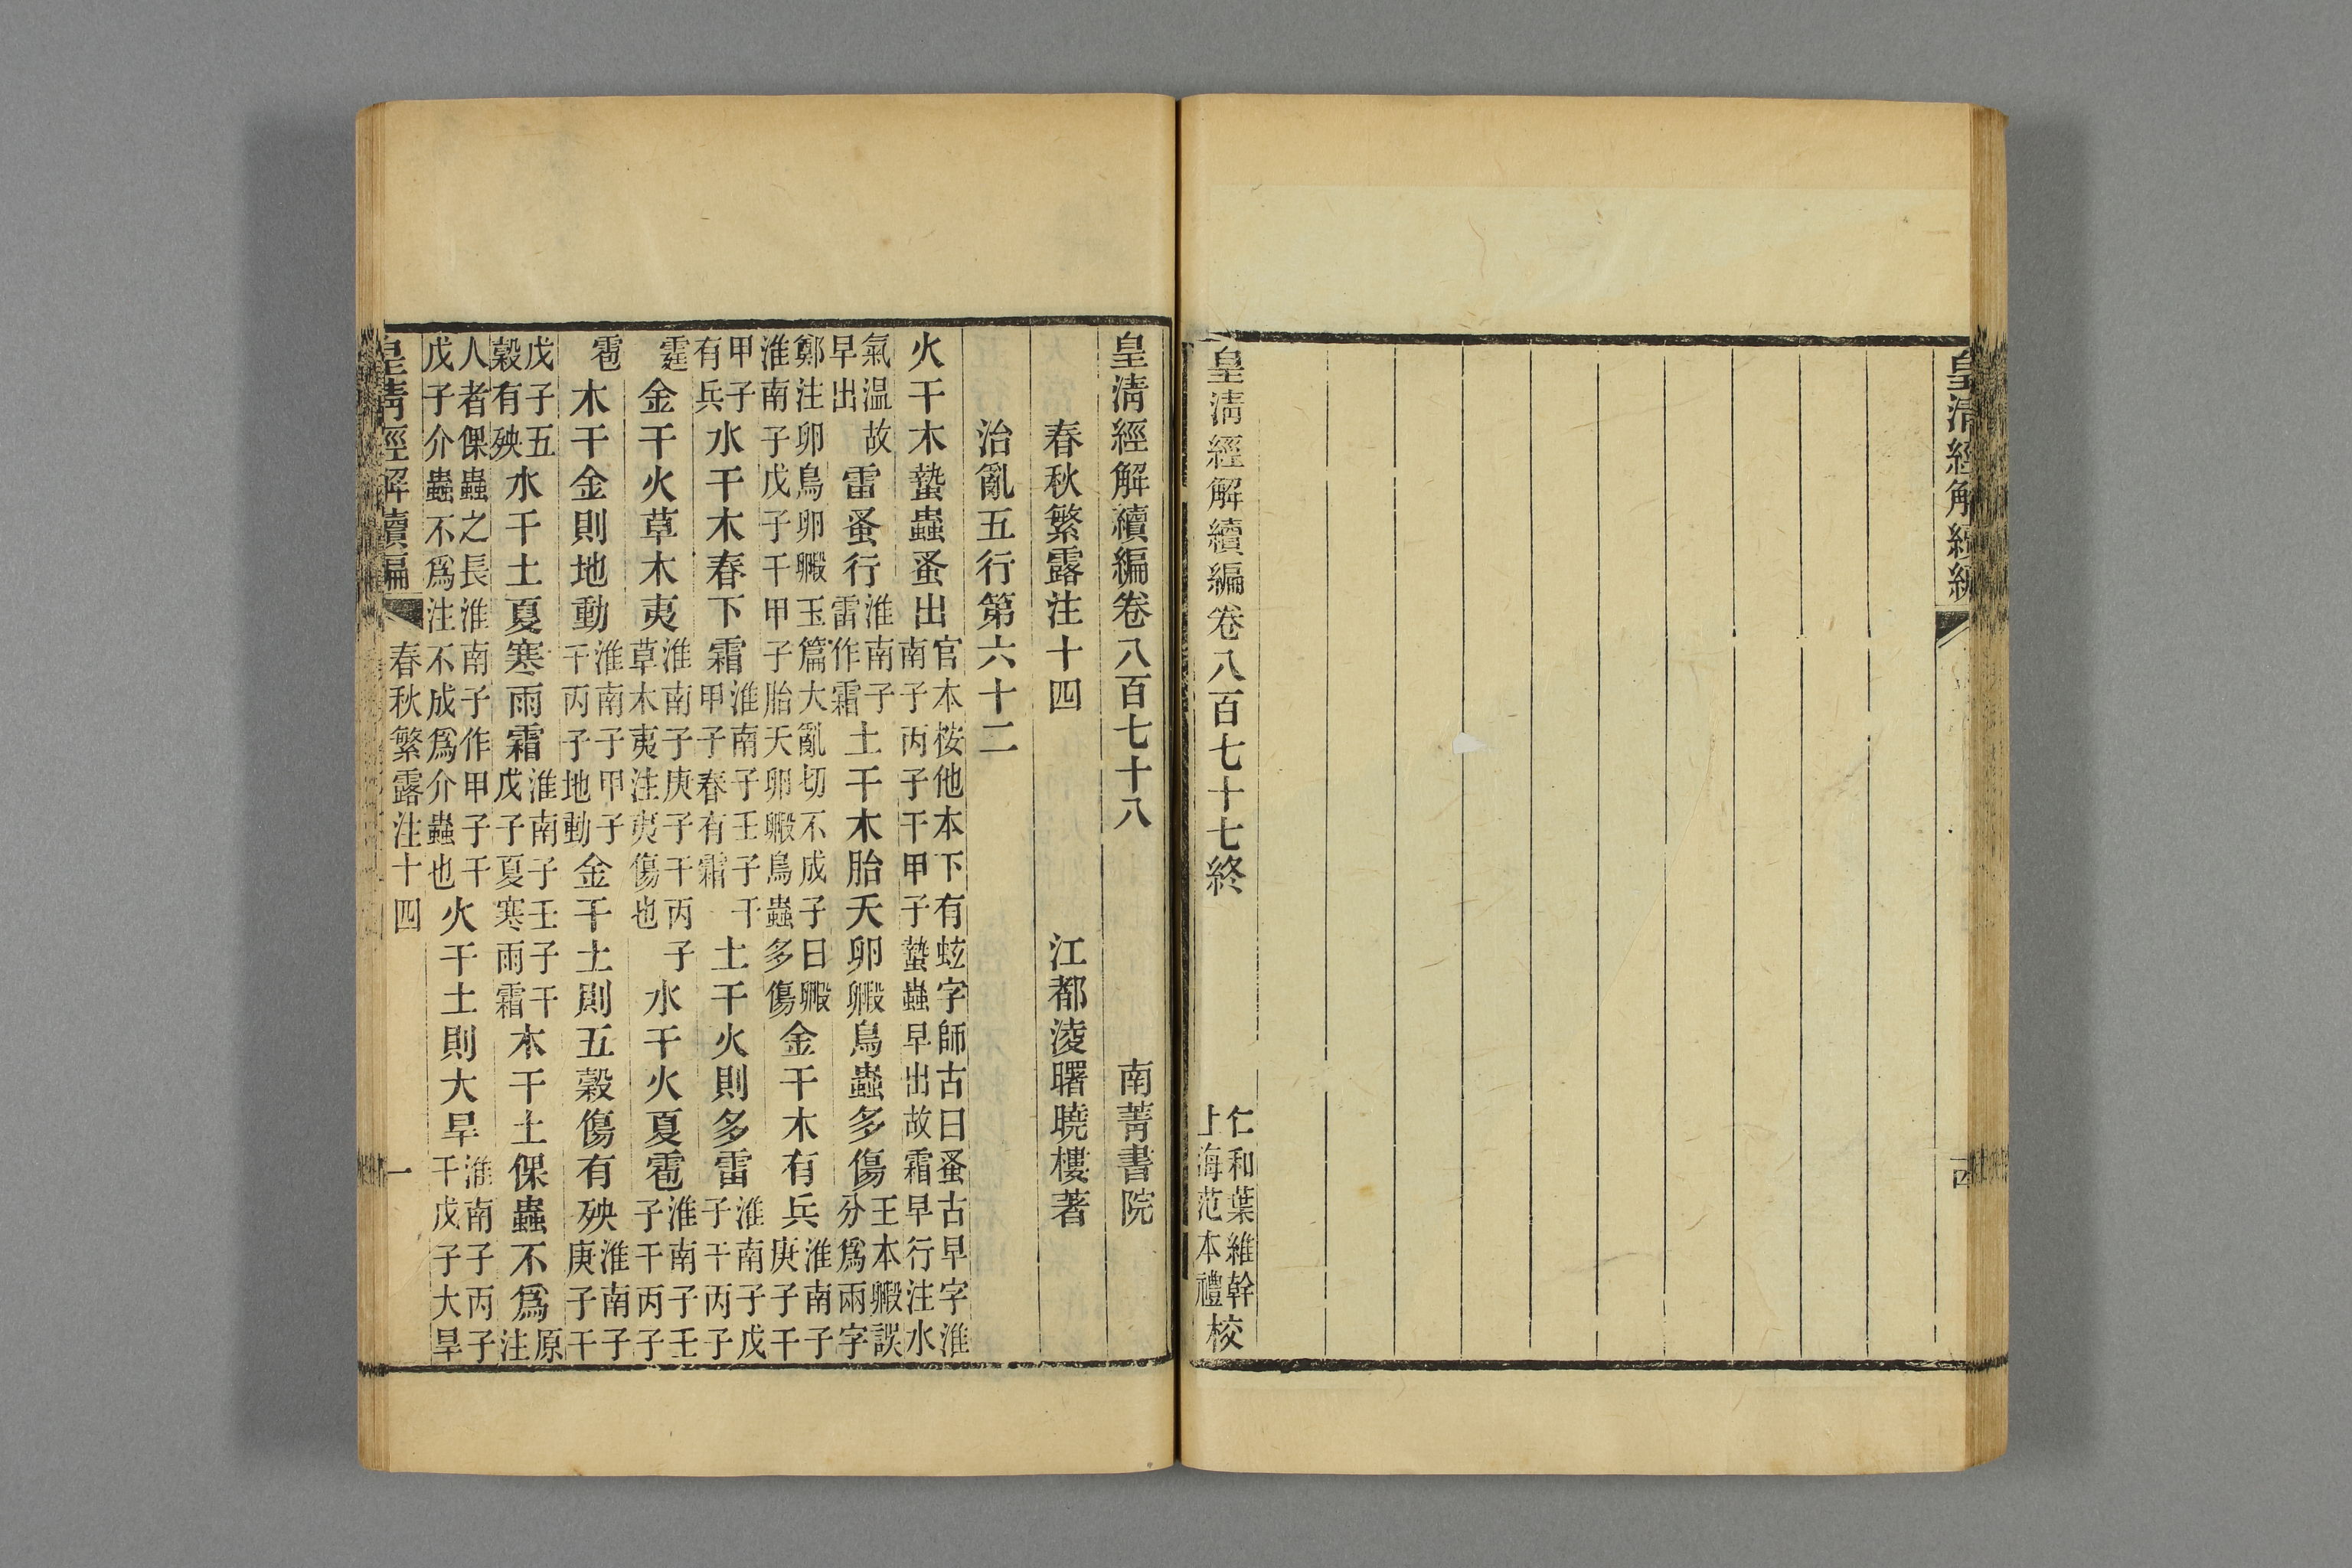 皇清經解續編
十四
皇清經解續編卷八百七十七終 仁和葉維幹上海范本禮校
皇清經解續編卷八百七十八 南菁書院
春秋繁露注十四 江都淩曙曉樓著
治亂五行第六十二
火干木蟄蟲蚤出官本桉他本下有蚿字師古曰蚤古早字淮南子丙子干甲子蟄蟲早出故霜早行注水
氣温故早出雷蚤行淮南子雷作霜土干木胎夭卵毈鳥蟲多傷王本毈誤分爲兩字
鄭注卵鳥卵毈玉篇大亂切不成子曰毈淮南子戊子干甲子胎夭卵毈鳥蟲多傷金干木有兵淮南子庚子干
甲子有兵水干木春下霜淮南子壬子干甲子春有霜土干火則多雷淮南子戊子干丙子
霆金干火草木夷淮南子庚子干丙子草木夷注夷傷也水干火夏雹淮南子壬子干丙子
雹木干金則地動淮南子甲子干丙子地動金干土則五穀傷有殃淮南子庚子干
戊子五穀有殃水干土夏寒雨霜淮南子壬子干戊子夏寒雨霜木干土倮蟲不爲原注
人者倮蟲之長淮南子作甲子干戊子介蟲不爲注不成爲介蟲也火干土則大旱淮南子丙子干戊子大旱
皇清經解續編 春秋繁露注十四 一